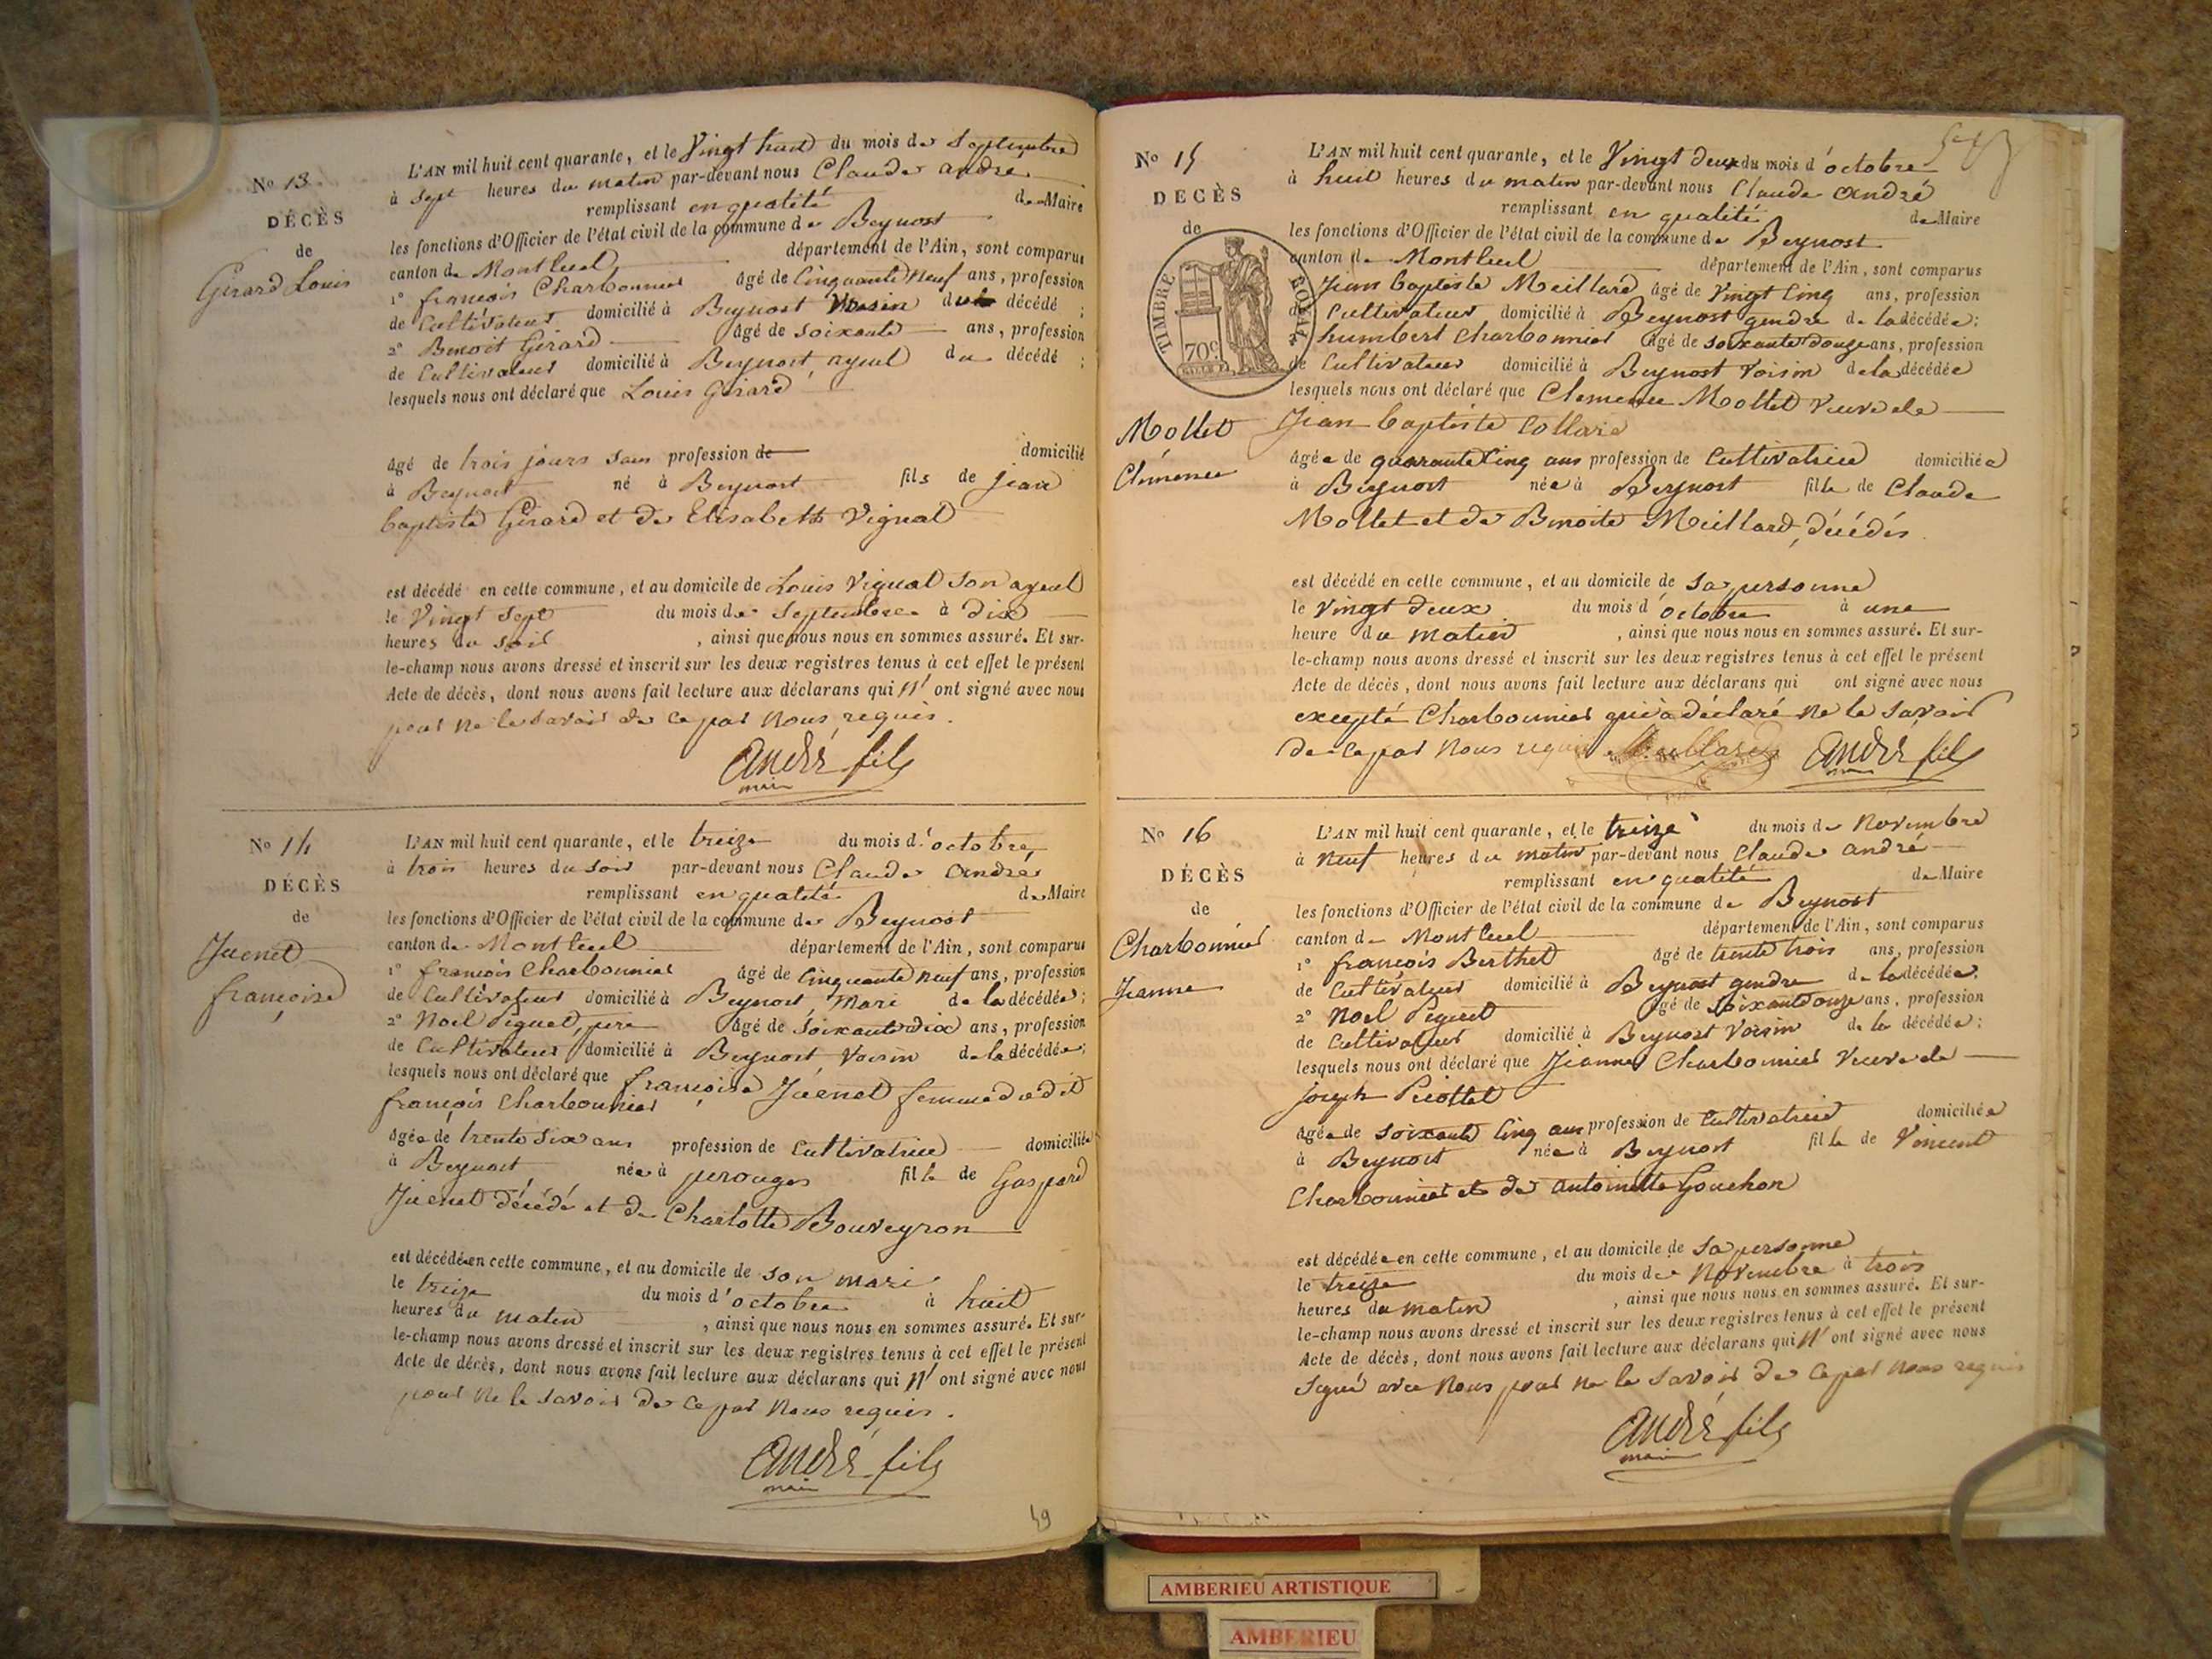 No 13
DÉCÈS
de
Gérard Louis
L'AN mil huit cent quarante, et le Vingt huit du mois de Septembre
à Sept heures du matin par-devant nous Claude andré
remplissant en qualité de Maire
les fonctions d'Officier de l'état civil de la commune de Beynost
canton de Montluel département de l'Ain, sont comparus
1° françois Charbonnier âgé de Cinquante Neuf ans, profession
de Cultivateur domicilié à Beynost Voisin du décédé ;
2° Benoit Gérard âgé de soixante ans, profession
de Cultivateur domicilié à Beynost, ayeul du décédé ;
lesquels nous ont déclaré que Louis Gérard
âgé de trois jours sans profession de domicilié
à Beynost né à Beynost fils de Jean
baptiste Gérard et de Elisabeth Vignat
est décédé en cette commune, et au domicile de Louis Vignat son ayeul
le Vingt Sept du mois de Septembre à dix
heures du soir , ainsi que nous nous en sommes assuré. Et sur-
le-champ nous avons dressé et inscrit sur les deux registres tenus à cet effet le présent
Acte de décès, dont nous avons fait lecture aux déclarans qui N' ont signé avec nous
pour ne le savoir de ce par Nous requis.
André fils
maire
No 14
DÉCÈS
de
Juenet
françoise
L'AN mil huit cent quarante, et le treize du mois d'octobre
à trois heures du soir par-devant nous Claude andré
remplissant en qualité de Maire
les fonctions d'Officier de l'état civil de la commune de Beynost
canton de Montluel département de l'Ain, sont comparus
1° françois Charbonnier âgé de Cinquante Neuf ans, profession
de Cultivateur domicilié à Beynost, Mari de la décédée ;
2° Noel Piquet, père âgé de Soixante dix ans, profession
de Cultivateur domicilié à Beynost Voisin de la décédée ;
lesquels nous ont déclaré que françoise Juenet femme du dit
françois Charbonnier
âgée de trente six ans profession de Cultivatrice domiciliée
à Beynost née à perouges fille de Gaspard
Juenet décédé et de Charlotte Bouveyron
est décédée en cette commune, et au domicile de son mari
le treize du mois d'octobre à huit
heures du matin , ainsi que nous nous en sommes assuré. Et sur-
le-champ nous avons dressé et inscrit sur les deux registres tenus à cet effet le présent
Acte de décès, dont nous avons fait lecture aux déclarans qui N' ont signé avec nous
pour ne le savoir de ce par Nous requis.
André fils
maire
49
No 15
DÉCÈS
de
TIMBRE ROYAL
70c
Mollet
Clémence
L'AN mil huit cent quarante, et le Vingt deux du mois d'octobre
à huit heures du matin par-devant nous Claude andré
remplissant en qualité de Maire
les fonctions d'Officier de l'état civil de la commune de Beynost
canton de Montluel département de l'Ain, sont comparus
Jean baptiste Meillard âgé de Vingt Cinq ans, profession
de Cultivateur domicilié à Beynost gendre de la décédée ;
humbert Charbonnier âgé de soixante douze ans, profession
de Cultivateur domicilié à Beynost Voisin de la décédée
lesquels nous ont déclaré que Clemence Mollet Veuve de
Jean baptiste Collard
âgée de quarante Cinq ans profession de Cultivatrice domiciliée
à Beynost née à Beynost fille de Claude
Mollet et de Benoite Meillard, décédés
est décédé en cette commune, et au domicile de sa personne
le Vingt deux du mois d'octobre à une
heure du matin , ainsi que nous nous en sommes assuré. Et sur-
le-champ nous avons dressé et inscrit sur les deux registres tenus à cet effet le présent
Acte de décès, dont nous avons fait lecture aux déclarans qui ont signé avec nous
excepté Charbonnier qui a déclaré ne le savoir
de ce par Nous requis Meillard André fils
maire
No 16
DÉCÈS
de
Charbonnier
Jeanne
L'AN mil huit cent quarante, et le treize du mois de Novembre
à Neuf heures du matin par-devant nous Claude andré
remplissant en qualité de Maire
les fonctions d'Officier de l'état civil de la commune de Beynost
canton de Montluel département de l'Ain, sont comparus
1° françois Berthet âgé de trente trois ans, profession
de Cultivateur domicilié à Beynost gendre de la décédée.
2° Noel Piquet âgé de soixante onze ans, profession
de Cultivateur domicilié à Beynost Voisin de la décédée ;
lesquels nous ont déclaré que Jeanne Charbonnier Veuve de
Joseph Picottet
âgée de soixante Cinq ans profession de Cultivatrice domiciliée
à Beynost née à Beynost fille de Vincent
Charbonnier et de antoinette Gouchon
est décédée en cette commune, et au domicile de Sa personne
le treize du mois de Novembre à trois
heures du matin , ainsi que nous nous en sommes assuré. Et sur-
le-champ nous avons dressé et inscrit sur les deux registres tenus à cet effet le présent
Acte de décès, dont nous avons fait lecture aux déclarans qui N' ont signé avec nous
Signé avec Nous pour ne le savoir de ce par Nous requis
André fils
maire
AMBERIEU ARTISTIQUE
AMBERIEU